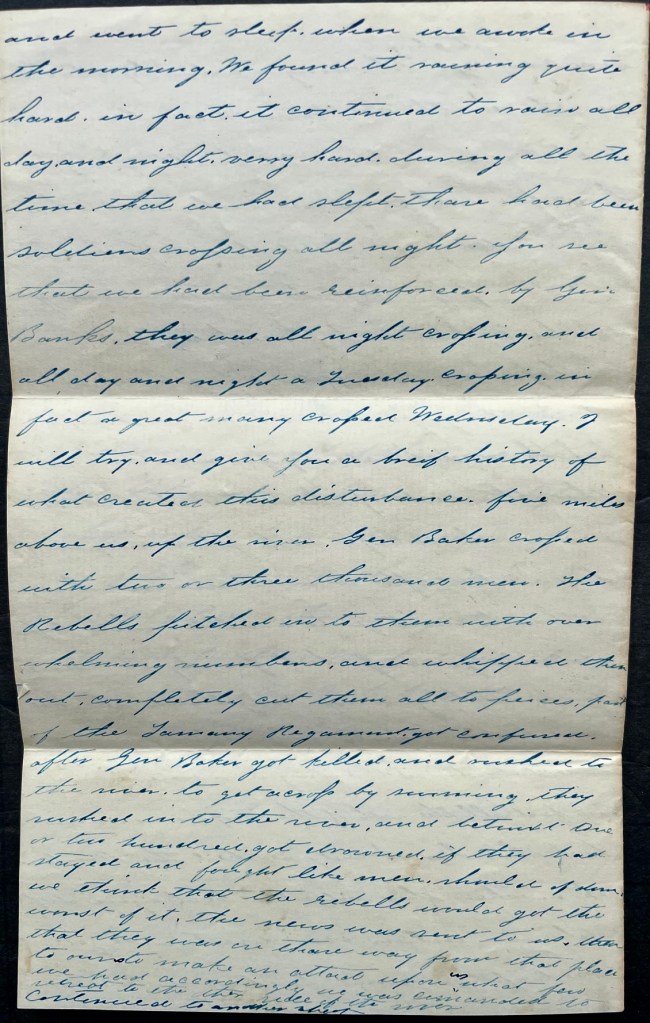 and went to sleep. when we awoke in
the morning. We found it raining quite
hard. in fact. it continued to rain all
day and night. verry hard. during all the
time. that we had slept. thare had been
soldiers crossing all night. you see
that we had been reinforced. by Gen
Banks. they was all night crossing. and
all day and night a Tuesday. crossing. in
fact a great many crossed Wednesday. I
will try. and give you a breif history of
what created this disturbance. five miles
above us, up the river. Gen Baker crossed
with two or three thousand men. The
Rebells pitched in to them with over
whelming numbers, and whipped them
out. completely cut them all to peices. part
of the Tamany Regament. got confused.
after Gen Baker got killed. and rushed to
the river. to get across by swimming. they
rushed in to the river. and betwixt one
or two hundred. got drowned. if they had
stayed and fought like men. should of done.
we think that the rebells would got the
worst of it. the news was sent to us. then
that they was on thare way from that place
to ours to make an attact upon us what few
we had accordingly we was commanded to
retreat to the other side of the river
Continued to another sheet